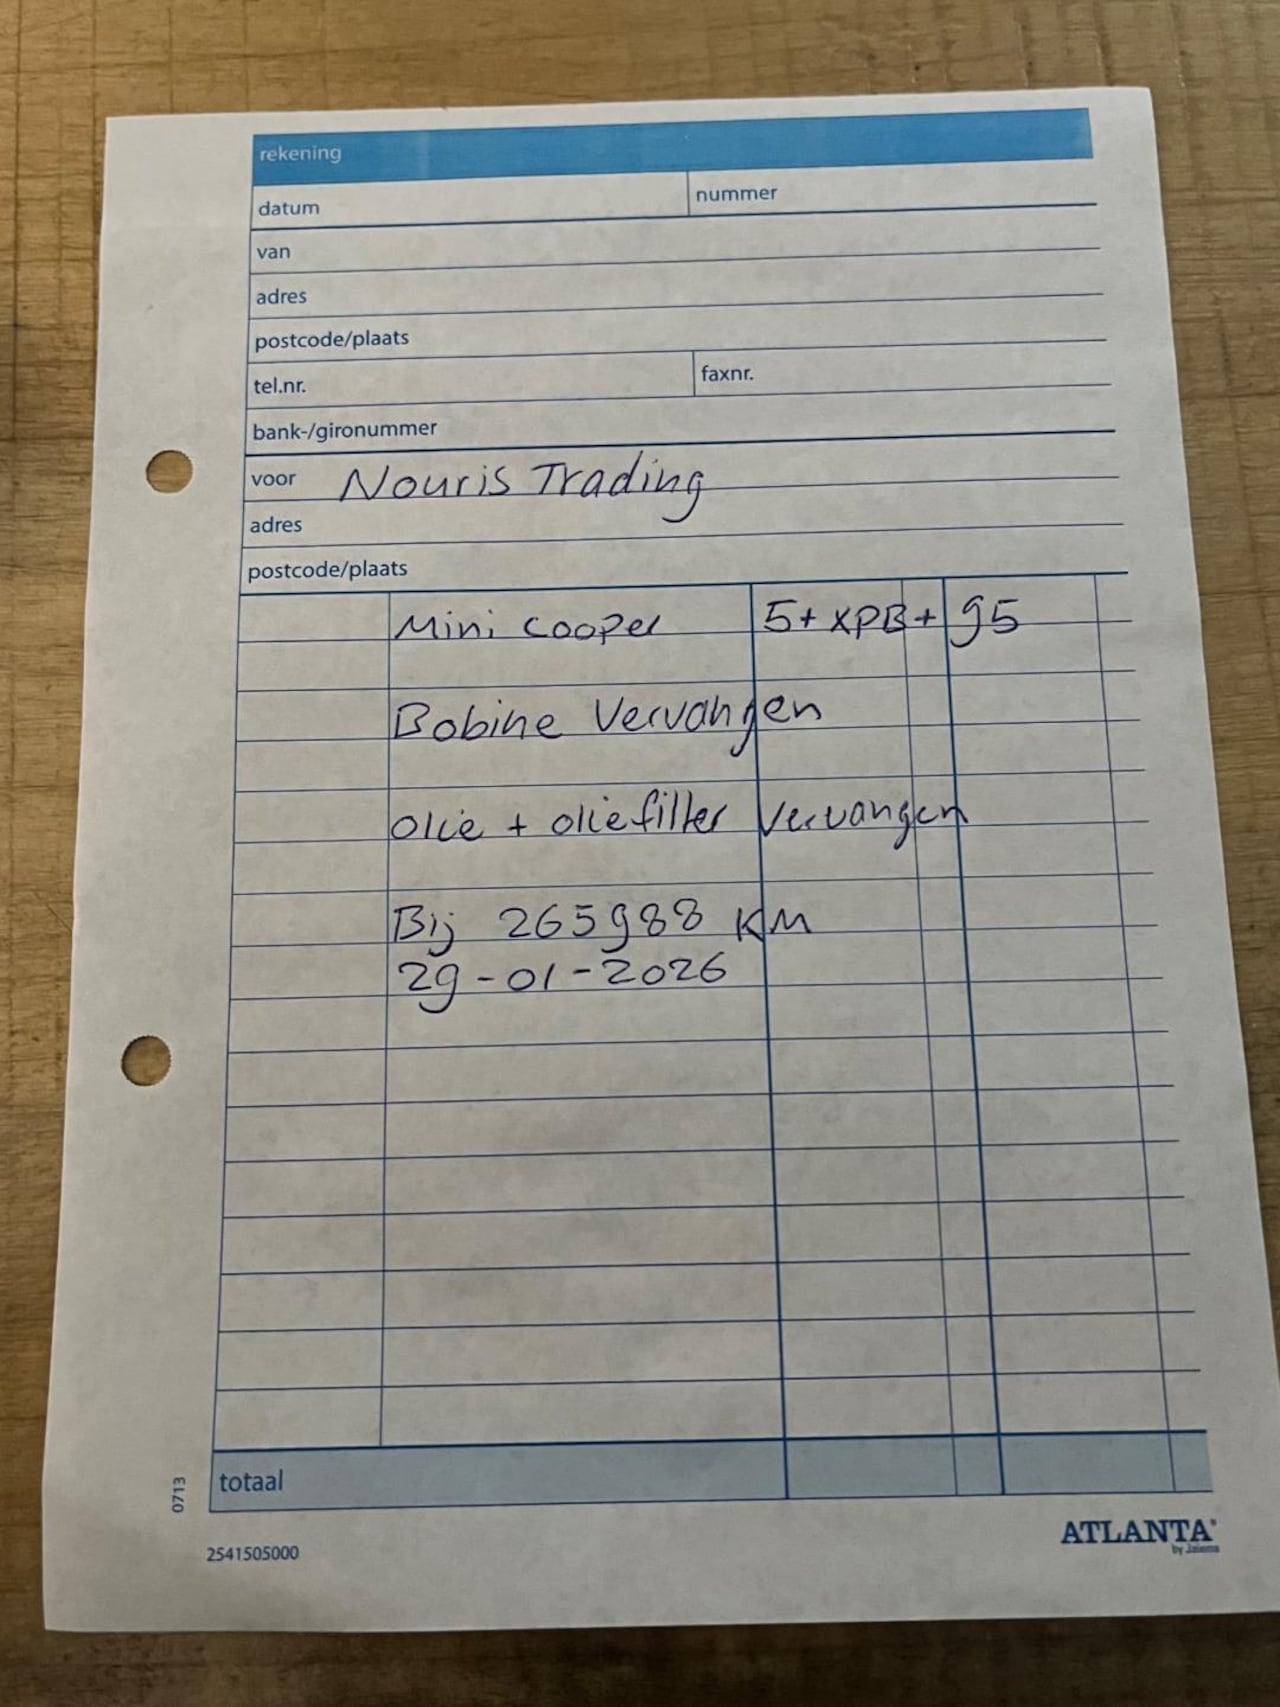 rekening
datum nummer
van
adres
postcode/plaats
tel.nr. faxnr.
bank-/gironummer
voor Nouris Trading
adres
postcode/plaats
Mini Cooper 5+XPB+95
Bobine Vervangen
Olie + oliefilter Vervangen
Bij 265988 KM
29-01-2026
totaal
0713
2541505000
ATLANTA®
by Jalema